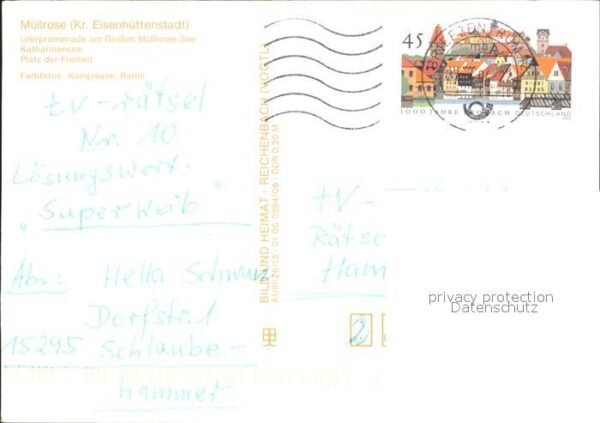 Müllrose (Kr. Eisenhüttenstadt)
Uferpromenade am Großen Müllroser See
Katharinensee
Platz der Freiheit
Farbfotos: Kampmann, Berlin
tv-rätsel
Nr. 10
Lösungswort:
"Superweib"
Abs.: Hella
Dorfstr. 1
15295 Schlaube-
hammer
BILD UND HEIMAT · REICHENBACH (VOGTL)
A1/81/26/13 · 01 05 0284/06 · DDR 0,20 M
45
BRIEFZENTRUM
1000 JAHRE DEUTSCHLAND
tv-
Rätse
Ham
2
privacy protection
Datenschutz